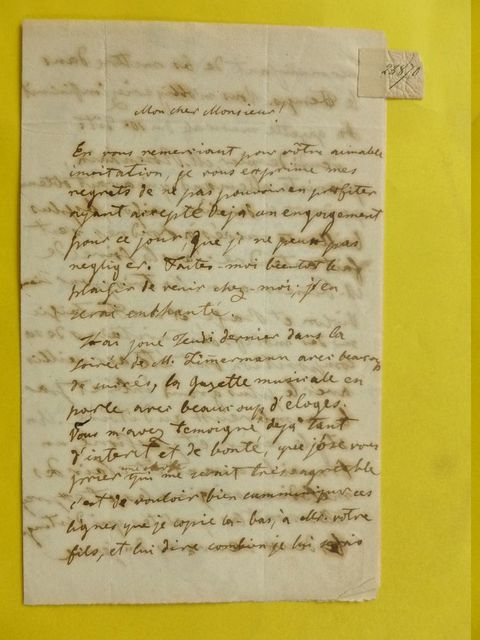 238/70
Mon cher Monsieur!
En vous remerciant pour vôtre aimable
invitation, je vous exprime mes
regrets de ne pas pouvoir en profiter
ayant accepté deja un engagement
pour ce jour, que je ne peux pas
négliger. Faites-moi bientot le
plaisir de venir chez-moi; j'en
serai enchanté.
J'ai joué Jeudi dernier dans la
soirée de M. Zimermann avec beaucoup
de succès, la Gazette musicale en
parle avec beaucoup d'éloges.
Vous m'avez temoigné dejà tant
d'interit et de bonté, que j'ose vous
prier une chose qui me serait très agréable
c'est de vouloir bien communiquer ces
lignes que je copie la-bas, à Mr. votre
fils, et lui dire combien je lui serais